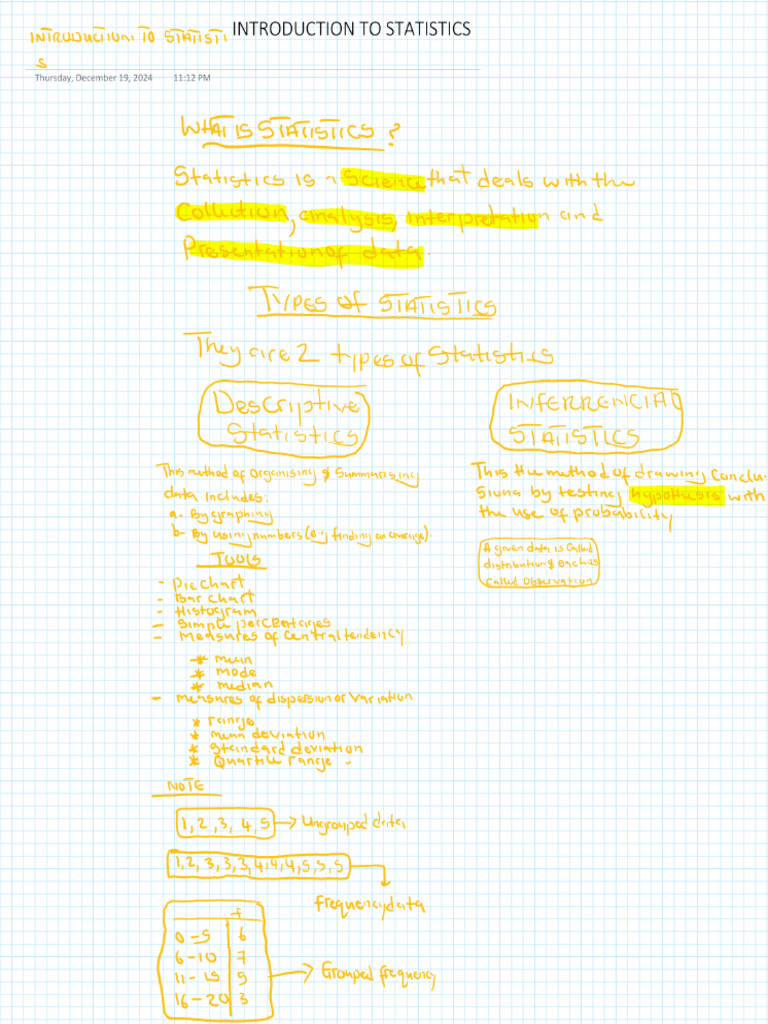 INTRODUCTION TO STATISTICS
INTRODUCTION TO STATISTI
S
Thursday, December 19, 2024 11:12 PM
WHAT IS STATISTICS ?
Statistics is a science that deals with the
Collection, analysis, interpretation and
Presentation of data.
TYPES OF STATISTICS
They are 2 types of statistics
Descriptive
Statistics
This method of Organising & Summarising
data includes:
a. By graphing
b- By using numbers (e.g finding an average).
TOOLS
- Pie chart
- Bar chart
- Histogram
- Simple percentages
- Measures of central tendency
* mean
* mode
* median
- measures of dispersion or Variation
* range
* mean deviation
* standard deviation
* Quartile range -
INFERRENCIAL
STATISTICS
This the method of drawing Conclu-
sions by testing hypothesis with
the use of probability
A given data is called
distribution & each is
called Observation
NOTE
1, 2, 3, 4, 5 → Ungrouped data
1, 2, 3, 3, 3, 4, 4, 4, 5, 5, 5
frequency data
f
0 - 5 6
6 - 10 7
11 - 15 5
16 - 20 3
→ Grouped frequency